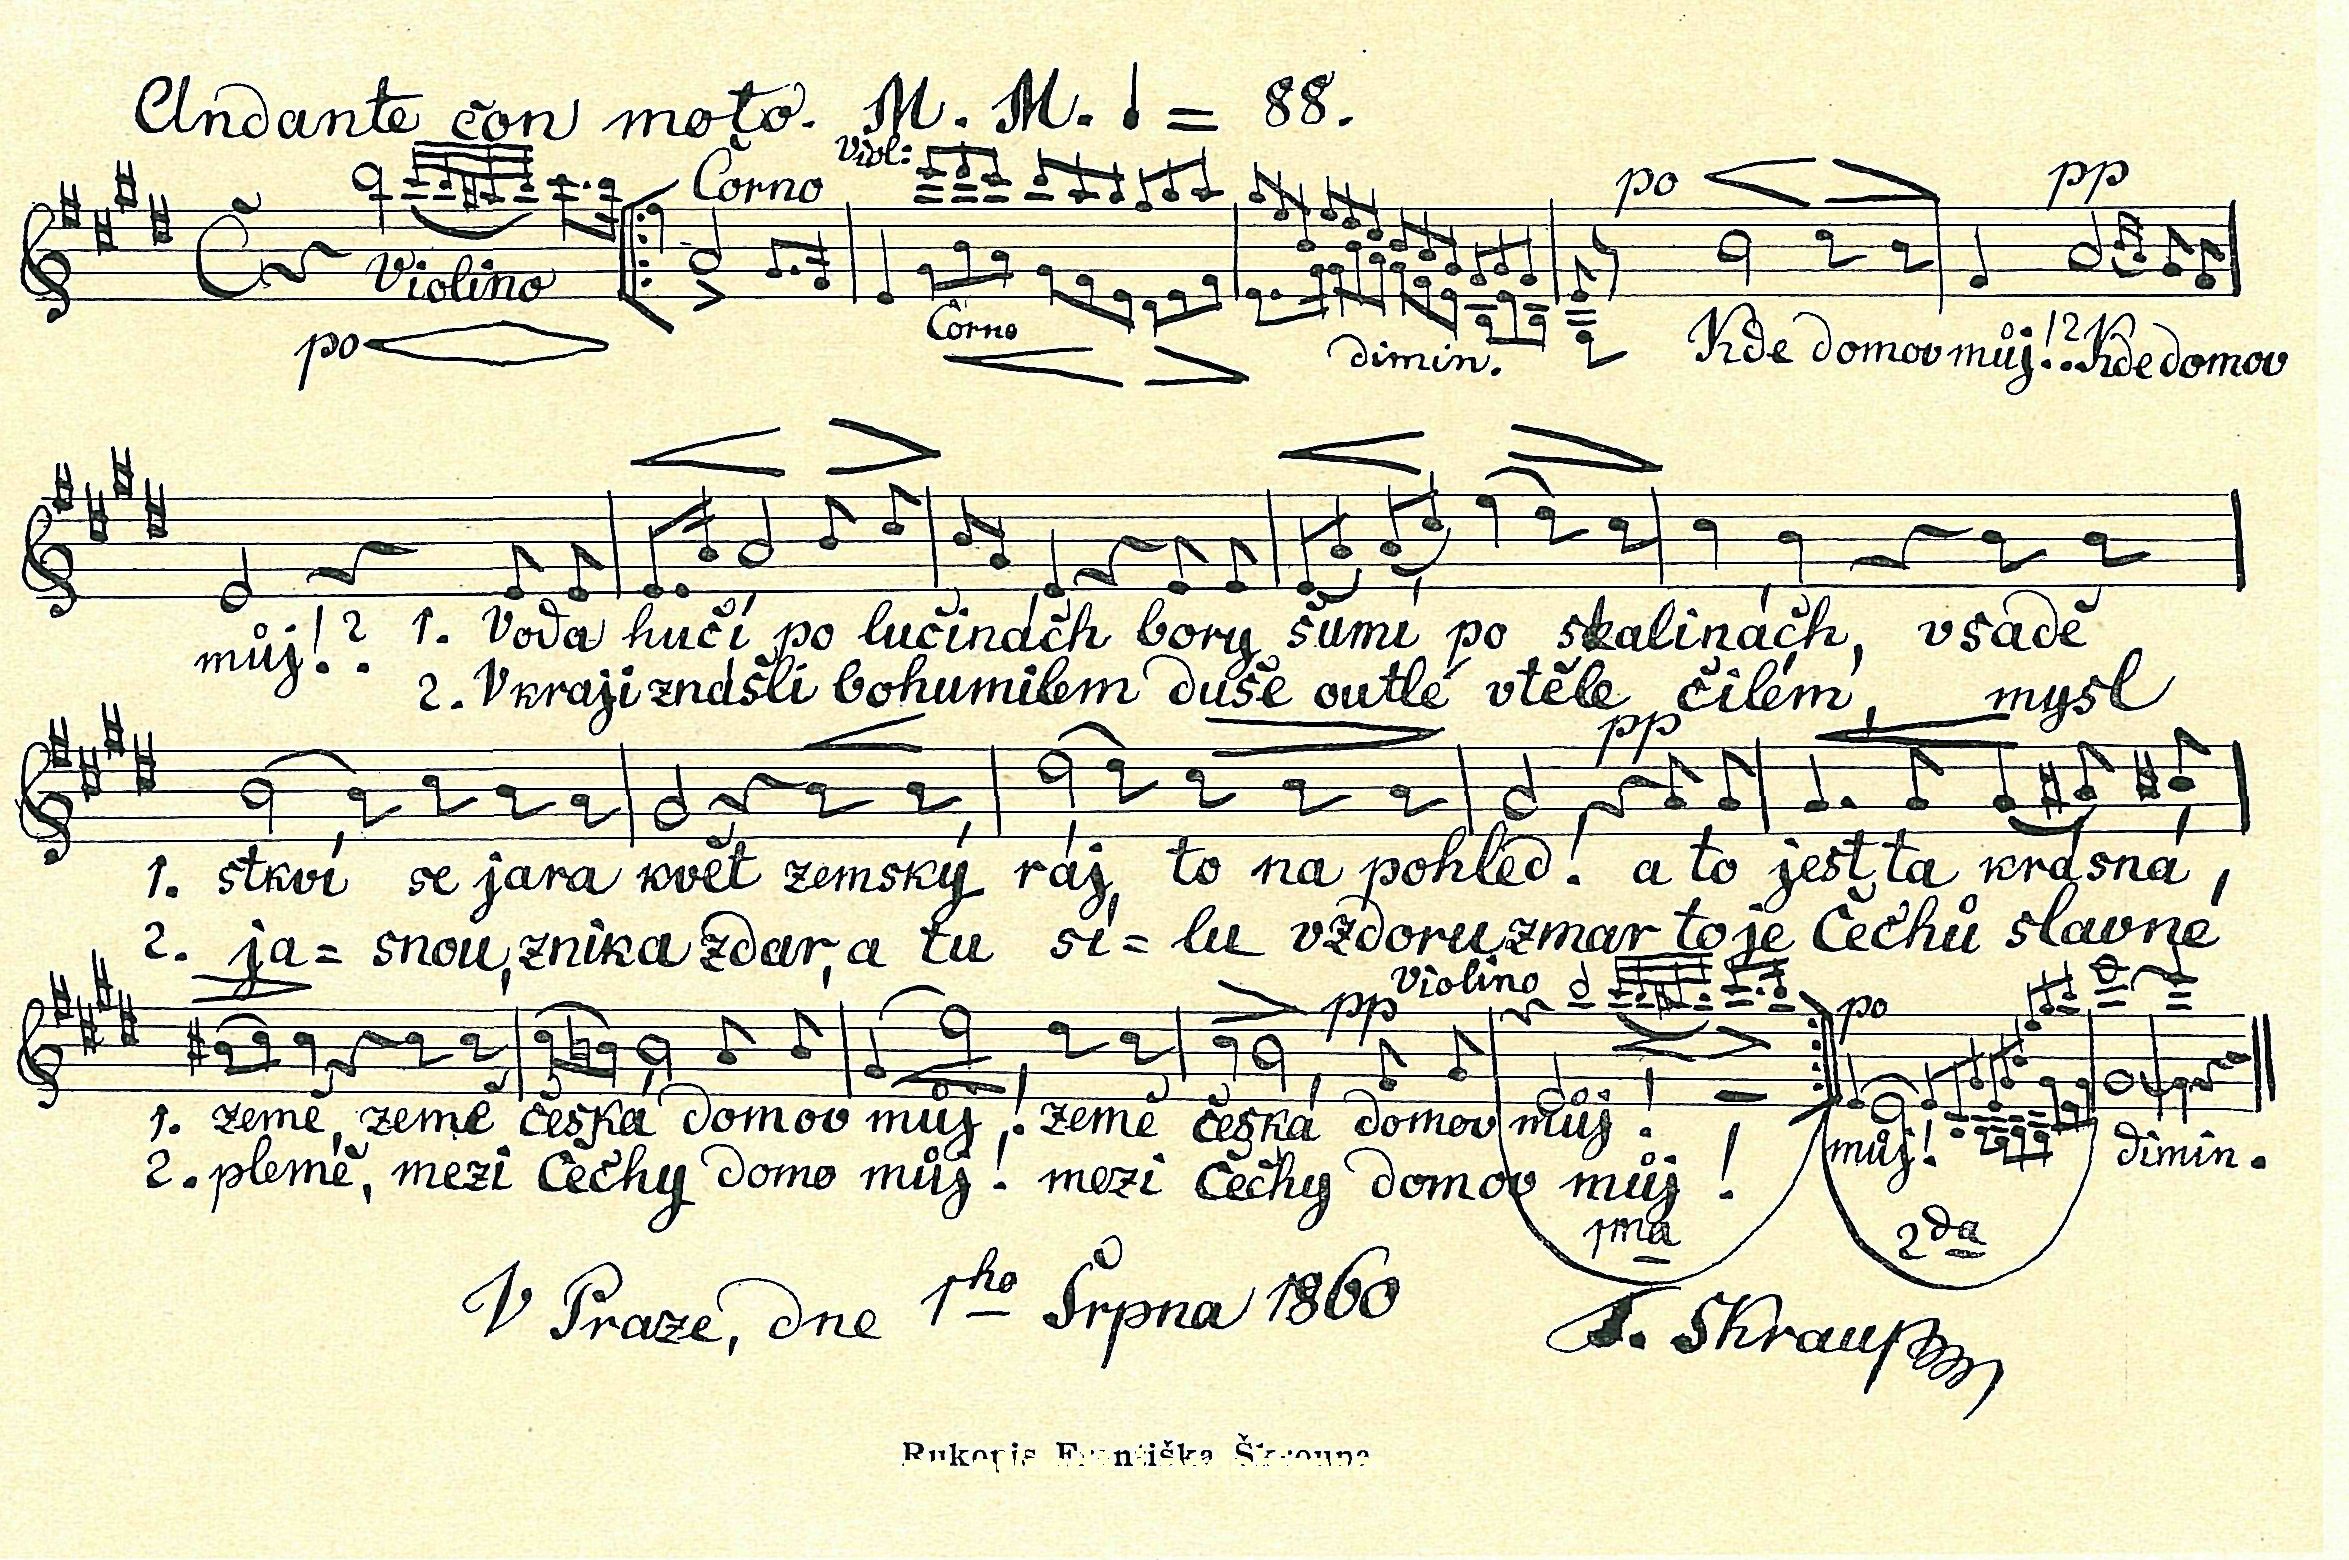 Andante con moto. M. M. ♩ = 88.
Viol:
Corno
Violino
po
Corno
dimin.
po
pp
Kde domov můj!? Kde domov
můj!? 1. Voda hučí po lučinách bory šumí po skalinách, vsadě
2. V kraji znášli bohumilem duše outlé vtěle čilém, mysl
pp
1. stkví se jara květ zemský ráj to na pohled! a to jest ta krásná,
2. ja=snou, znika zdar, a tu sí=lu vzdoru zmar to je Čechů slavné
pp Violino po
1. země, země česká domov můj! země česká domov můj! můj! dimin.
2. plemě, mezi Čechy domo můj! mezi Čechy domov můj!
1ma 2da
V Praze, dne 1ho Srpna 1860
F. Skraup
Rukopis Františka Škroupa